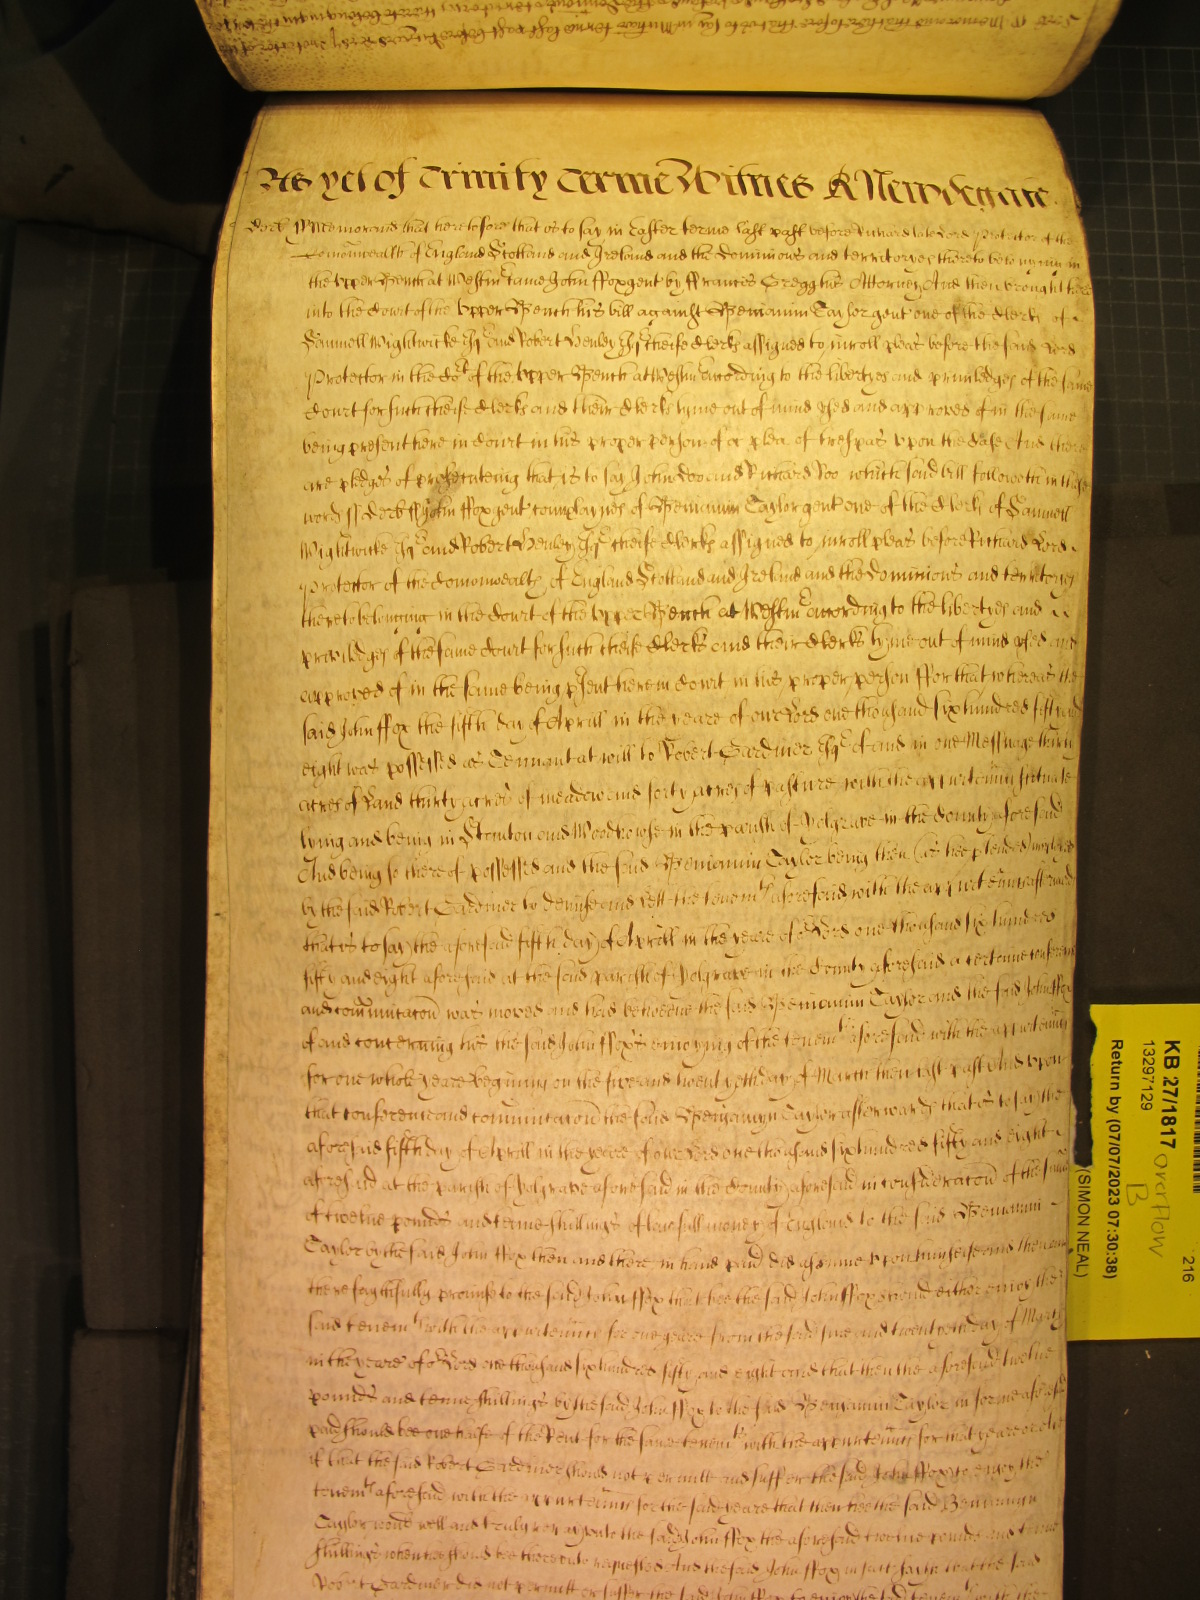 As yet of Trinity Terme Witnes R Newdegate
Derb ss Memorand that heretofore that is to say in Easter terme last past before Richard late Lord Protector of the
Comonwealth of England Scotland and Ireland and the Dominions and territoryes thereto belonging in
the upper Bench at Westm came John Ffox gent by Ffrancis Gregg his Attorney And then brought here
into the Court of the Upper Bench his bill against Beniamin Taylor gent one of the Clerks of
Samuell Wightwicke Esqr and Robert Henley Esqr cheife Clerks assigned to inroll pleas before the said Lord
Protector in the Cort of the upper Bench at Westm according to the libertyes and priviledges of the same
Court for such cheife Clerks and their Clerks tyme out of mind used and approved of in the same
being present here in Court in his proper person of a plea of trespas upon the Case And there
are pledges of prosecuteing that is to say John Doo and Richard Roo which said bill followeth in these
words ss Derb ss John Ffox gent complaynes of Beniamin Taylor gent one of the Clerks of Samuell
Wightwicke Esqr and Robert Henley Esqr cheife Clerks assigned to inroll pleas before Richard Lord
Protector of the Comonwealth of England Scotland and Ireland and the Dominions and territoryes
thereto belonging in the Court of the upper Bench at Westm according to the libertyes and
priviledges of the same Court for such cheife Clerks and their Clerks tyme out of mind used and
approved of in the same being psent here in Court in his proper person Ffor that whereas the
said John Ffox the fifth day of Aprill in the yeare of our Lord one thousand six hundred fifty and
eight was possessed as Tennant at will to Robert Gardiner Esqr of and in one Messuage thirty
acres of Land thirty acres of meadow and forty acres of pasture with the appurtenncs scituate
lying and being in Stanton and Woodhowse in the parish of Yolgrave in the County aforesaid
And being so thereof possessed and the said Beniamin Taylor being then (as hee ptended)
by the said Robert Gardiner to demise and lett the tenemts aforesaid with the appurtenncs afterwards
that is to say the aforesaid fifth day of Aprill in the yeare of or Lord one thousand six hundred
fifty and eight aforesaid at the said parish of Yolgrave in the County aforesaid a certaine conference
and comunicacon was moved and had betweene the said Beniamin Taylor and the said John Ffox
of and concerning his the said John Ffox's enioying of the tenemts aforesaid with the appurtenncs
for one whole yeare beginning on the five and twentyeth day of March then last past And upon
that conference and comunicacon the said Beniamyn Taylor afterwards that is to say the
aforesaid fifth day of Aprill in the yeare of our Lord one thousand six hundred fifty and eight
aforesaid at the parish of Yolgrave aforesaid in the County aforesaid in consideracon of the sume
of twelve pounds and tenne shillings of lawfull money of England to the said Beniamin
Taylor by the said John Ffox then and there in hand paid did assume upon himselfe and then and
there faythfully promise to the said John Ffox that hee the said John Ffox should either enioy the
said tenemts with the appurtenncs for one yeare from the said five and twentyeth day of March
in the yeare of or Lord one thousand six hundred fifty and eight and that then the aforesaid twelve
pounds and tenne shillings by the said John Ffox to the said Beniamyn Taylor in forme aforesaid
paid should bee one halfe of the Rent for the same tenemts with the appurtenncs for that yeare or else
if that the said Robert Gardiner should not permitt and suffer the said John Ffox to enioy the
tenemts aforesaid with the appurtenncs for the said yeare that then hee the said Beniamyn
Taylor would well and truly repay unto the said John Ffox the aforesaid twelve pounds and tenne
shillings when hee should bee thereunto requested And the said John Ffox in fact sayth that the said
Robert Gardiner did not permitt or suffer the said John Ffox to enioy the said tenemts with the
KB 27/1817 overflow B
216
13297129
Return by (07/07/2023 07:30:38)
(SIMON NEAL)